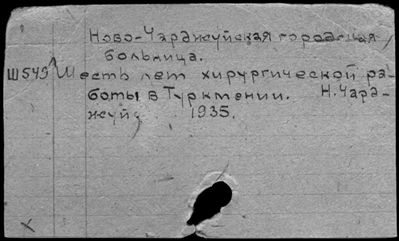 Ново-Чарджуйская городская
больница.
Ш549 Шесть лет хирургической ра-
боты в Туркмении. Н.Чард-
жуй, 1935.